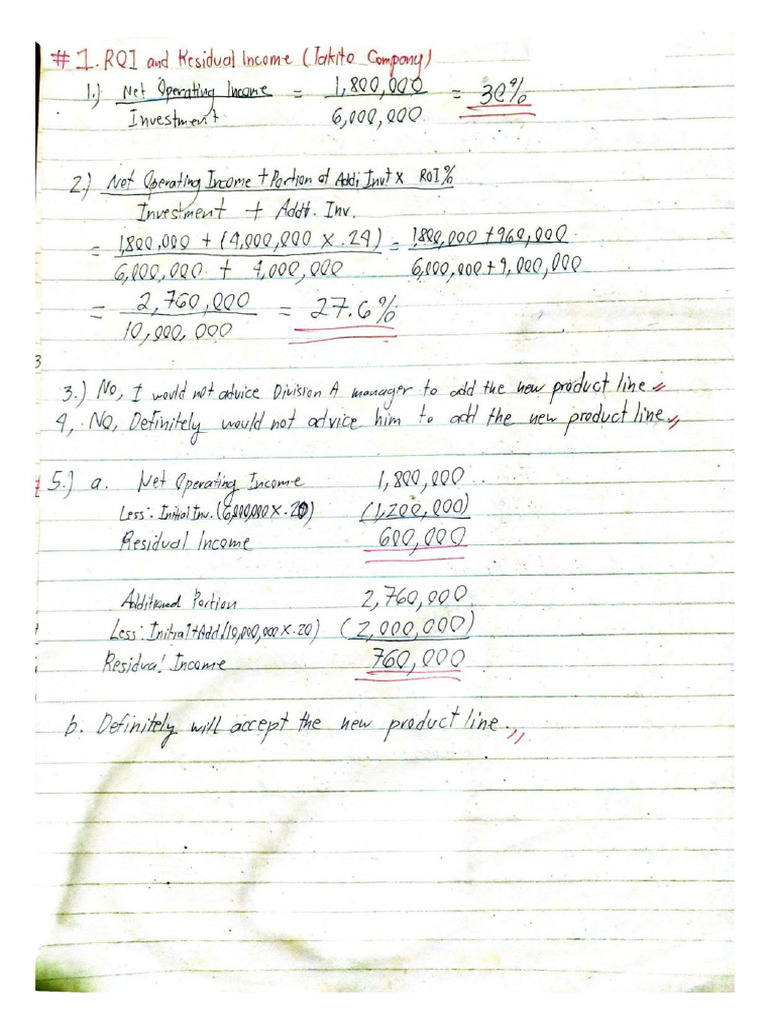 #1. ROI and Residual Income (Jakito Company)
1.) Net Operating Income = 1,800,000 = 30%
Investment 6,000,000
2.) Net Operating Income + Portion of Addi Invt x ROI%
Investment + Addt. Inv.
= 1,800,000 + (4,000,000 x .24) = 1,800,000 + 960,000
6,000,000 + 4,000,000 6,000,000 + 4,000,000
= 2,760,000 = 27.6%
10,000,000
3
3.) No, I would not advice Division A manager to add the new product line
4, No, Definitely would not advice him to add the new product line
5.) a. Net Operating Income 1,800,000
Less: Initial Inv. (6,000,000 x .20) (1,200,000)
Residual Income 600,000
Additional Portion 2,760,000
Less: Initial+Add (10,000,000 x .20) (2,000,000)
Residual Income 760,000
b. Definitely will accept the new product line.